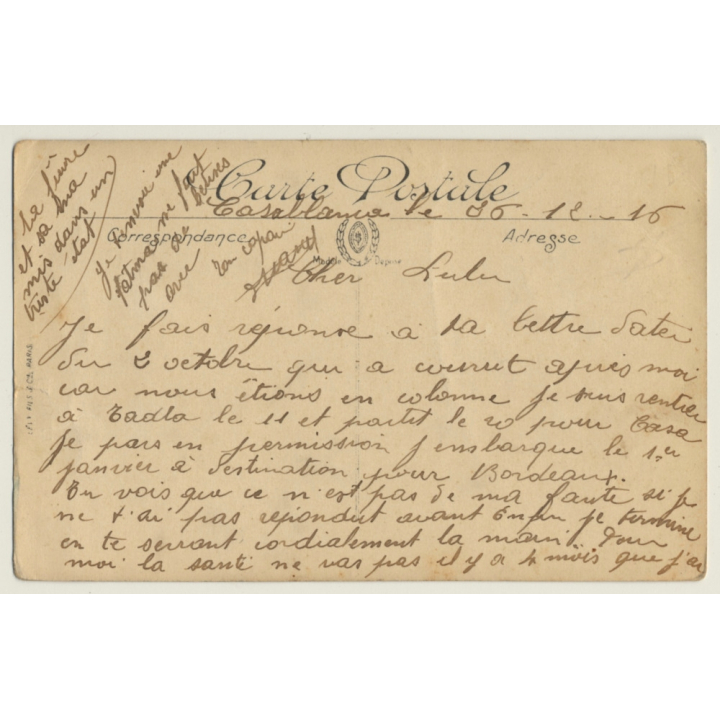 Carte Postale
Casablanca le 26-12-16
Correspondance
Adresse
Cher Lulu
Je fais réponse à ta lettre dater
du 2 octobre qui a courrut après moi
car nous étions en colonne je suis rentrer
à Tadla le 11 et partit le 20 pour Casa
je pars en permission j'embarque le 1er
janvier à destination pour Bordeaux.
Tu vois que ce n'est pas de ma faute si je
ne t'ai pas répondut avant Enfin je termine
en te serrant cordialement la main. Pour
moi la santé ne vas pas il y a 4 mois que j'ai
la fièvre
et sa ma
mis dans un
triste état
Je t'envoie une
fatma ne fait
pas de bêtises
avec
Ton copain